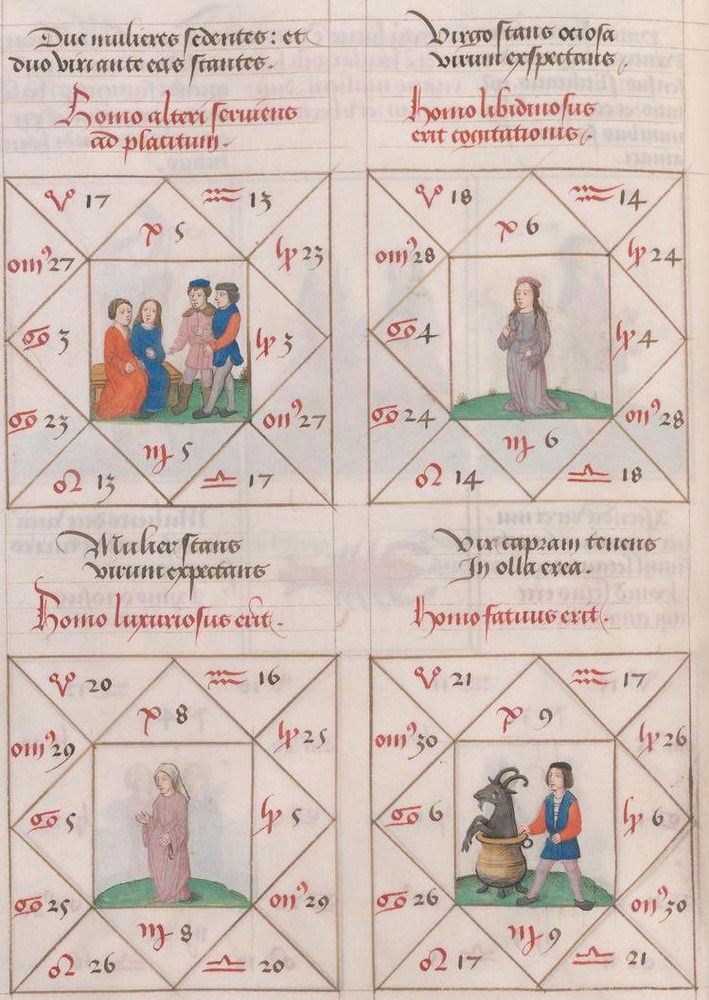 Due mulieres sedentes: et
duo viri ante eas stantes.
Homo alteri serviens
ad placitum.
♈ 17
♒ 13
♉ 27
5
♓ 23
♋ 3
3
♋ 23
♉ 27
♏ 5
♌ 13
♎ 17
Virgo stans ociosa
virum exspectans
Homo libidinosus
erit cogitationis
♈ 18
♒ 14
28
6
24
♋ 4
4
♋ 24
28
♏ 6
♌ 14
♎ 18
Mulier stans
virum expectans
Homo luxuriosus erit.
♈ 20
♒ 16
29
8
25
♋ 5
5
♋ 25
29
♏ 8
♌ 26
♎ 20
Vir capram tenens
In olla erea.
Homo fatuus erit.
♈ 21
♒ 17
30
9
26
♋ 6
6
♋ 26
30
♏ 9
♌ 17
♎ 21